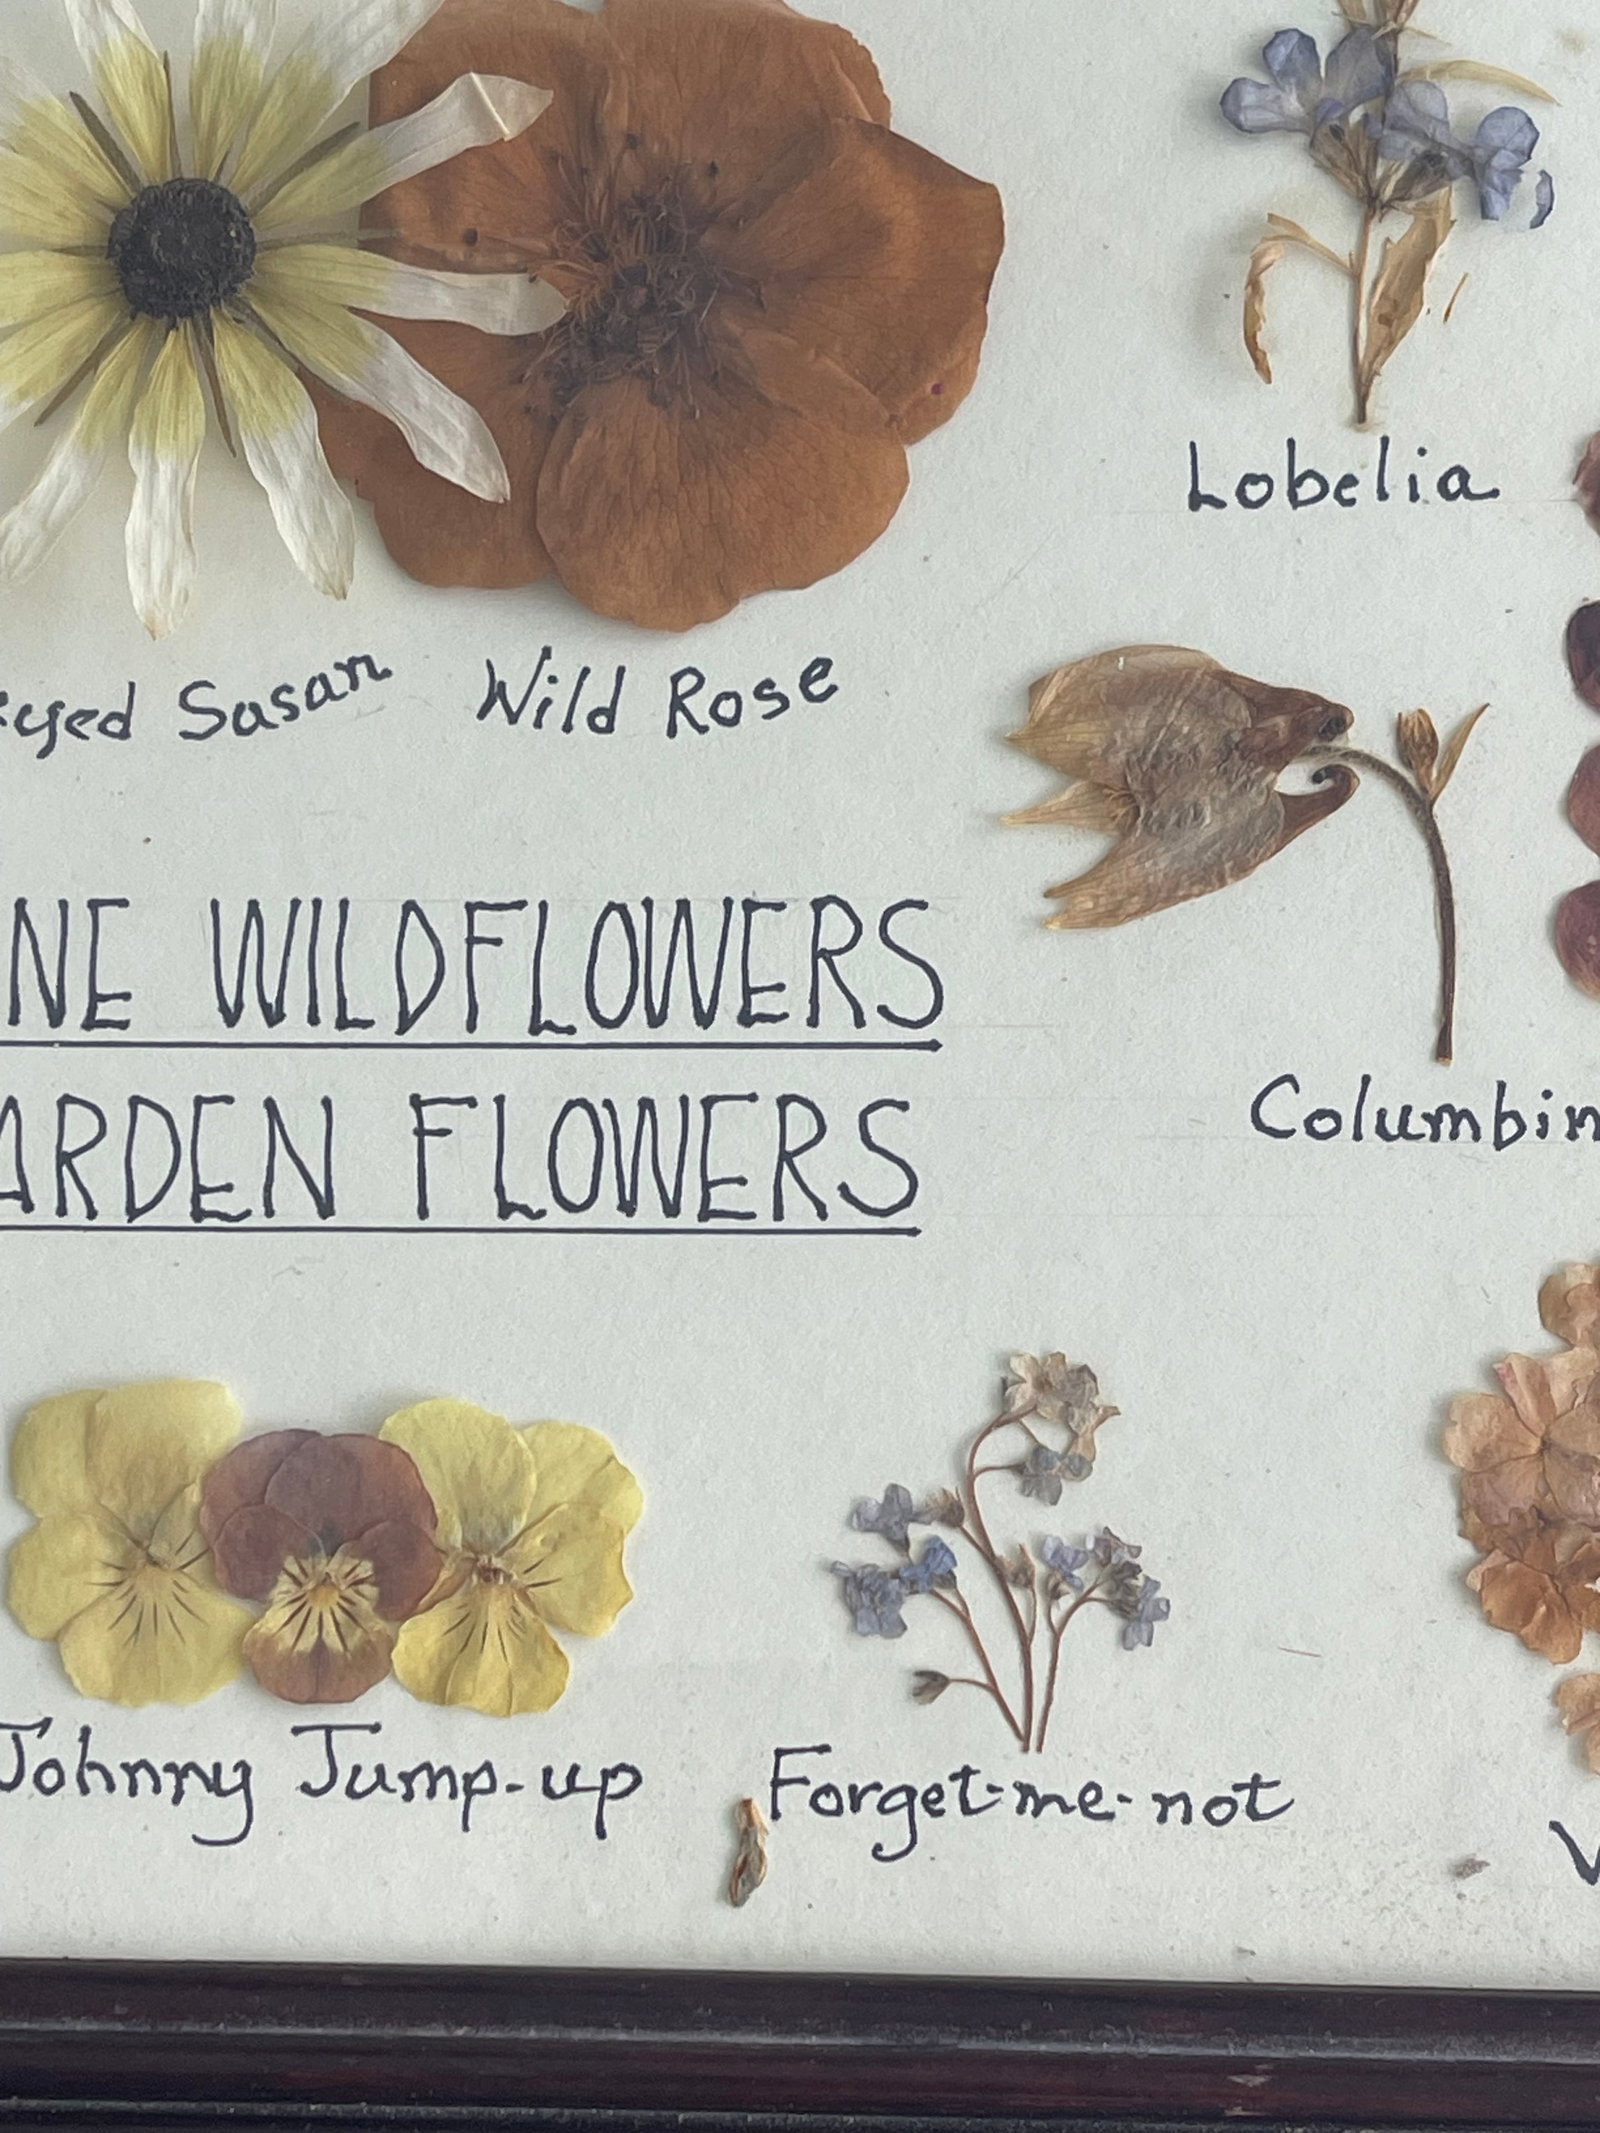 Lobelia
eyed Susan Wild Rose
NE WILDFLOWERS
Columbin
ARDEN FLOWERS
Johnny Jump-up Forget-me-not
V